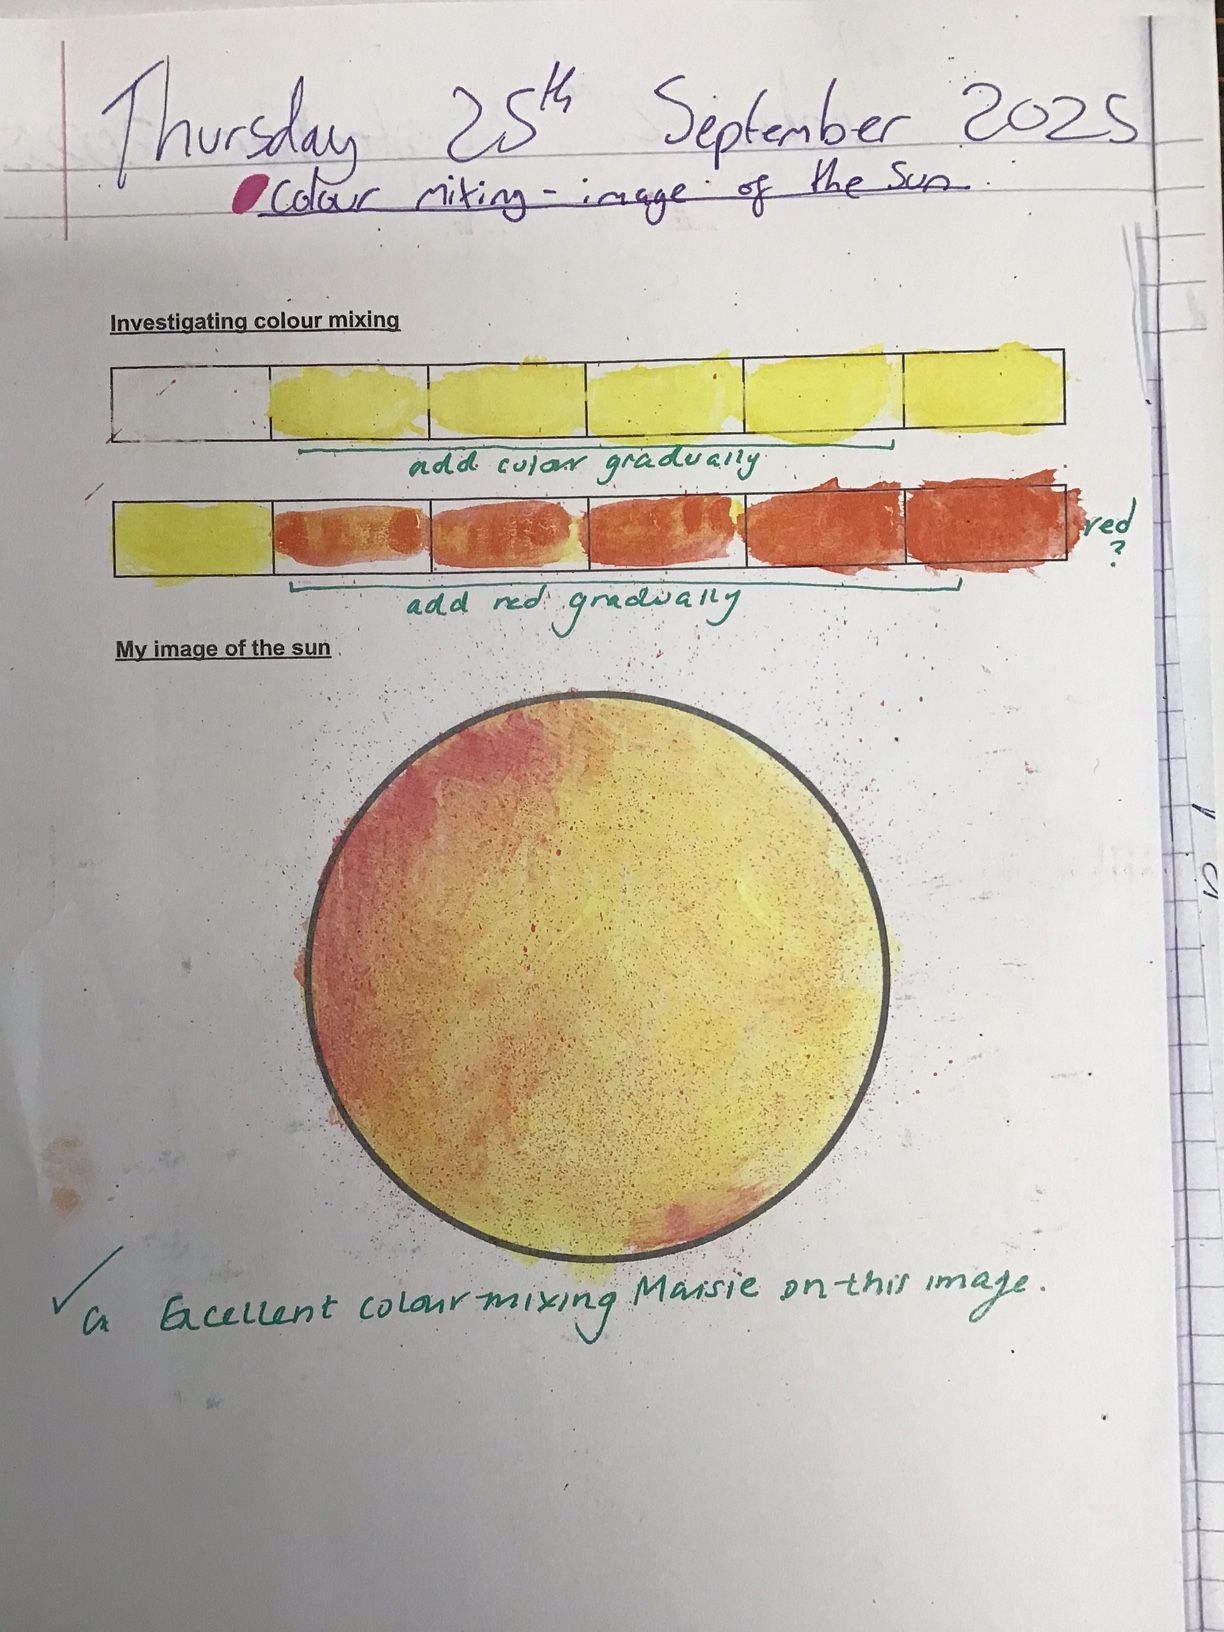 Thursday 25th September 2025
Colour mixing - image of the Sun.
Investigating colour mixing
add colour gradually
red
?
add red gradually
My image of the sun
Excellent colour mixing Maisie on this image.